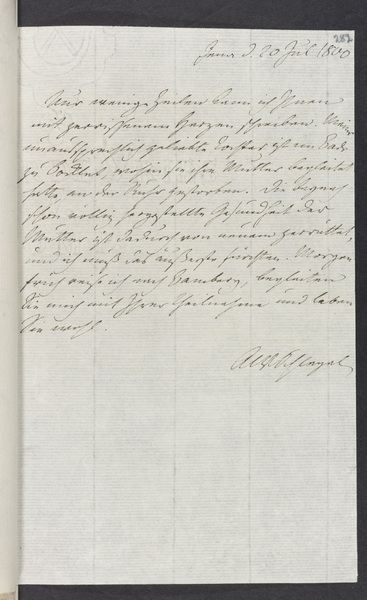 287
Jena d. 20 Jul 1800
Nur wenige Zeilen kann ich Ihnen
mit zerrissenem Herzen schreiben. Meine
unaussprechlich geliebte Tochter ist im Bade
zu Bocklet, wohin sie ihre Mutter begleitet
hatte, an der Ruhr gestorben. Die beynah
schon völlig hergestellte Gesundheit der
Mutter ist dadurch von neuem zerrüttet,
und ich muß das äußerste fürchten. Morgen
früh reise ich nach Bamberg, begleiten
Sie mich mit Ihrer Theilnahme und leben
Sie wohl.
AWSchlegel